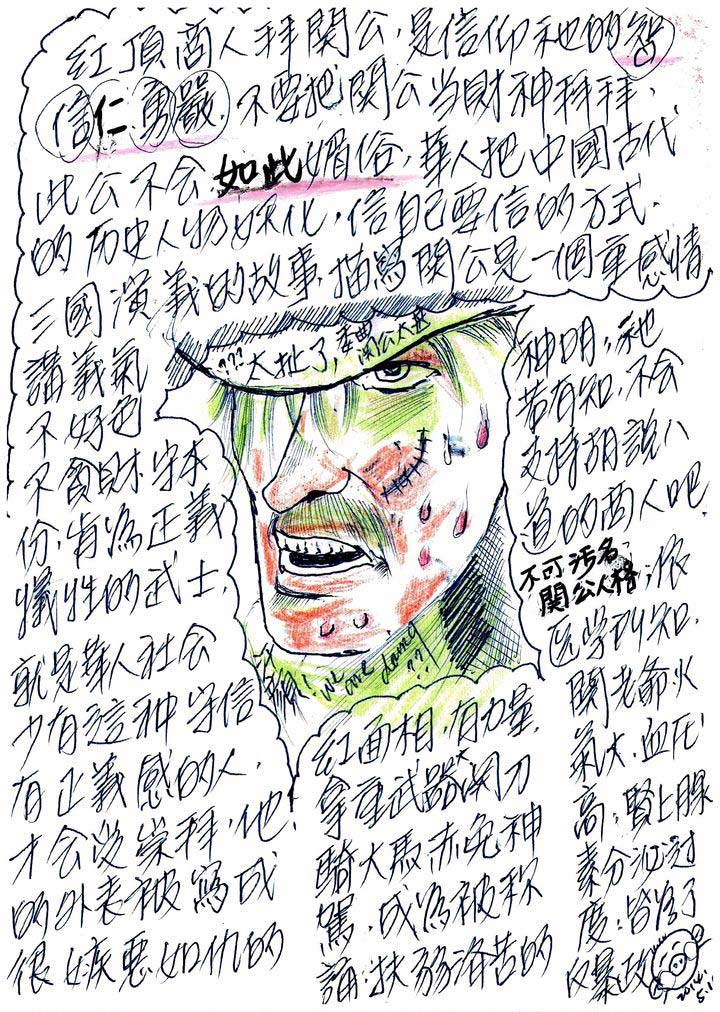 紅頂商人拜関公，是信仰祂的智
信仁勇嚴，不要把関公当財神拜拜，
此公不会如此媚俗，華人把中國古代
的历史人物妖化，信自己要信的方式．
三國演義的故事，描寫関公是一個重感情
講義氣
不好色
不貪財，守本
份，肯為正義
犧牲的武士，
就是華人社会
少有這种守信
有正義感的人，
才会受崇拜，他
的外表被寫成
很嫉惡如仇的
紅面相，有力量，
拿重武器大関刀
騎大馬赤兔神
駕，成為被称
誦：扶弱济苦的
神明，祂
若有知，不会
支持胡說八
道的商人吧．
不可污名
関公人格；依
医学判知，
関老爺火
氣大，血压
高；腎上腺
素分泌过
度；皆為了
反暴政
???太扯了，
関公大老
We are
??
2014.
5.1.